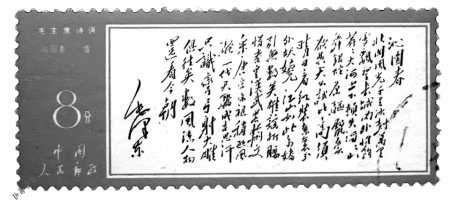 毛主席诗词
沁园春 雪
8分
中国
人民邮政
沁园春
北国风光千里冰封万里
雪飘望长城内外惟馀
莽莽大河上下顿失滔滔山
舞银蛇原驰腊象欲
与天公试比高须
晴日看红装素裹分
外妖娆 江山如此多娇
引无数英雄竞折腰
惜秦皇汉武略输文
采唐宗宋祖稍逊风
骚一代天骄成吉思汗
只识弯弓射大雕
俱往矣数风流人物
还看今朝
毛泽东